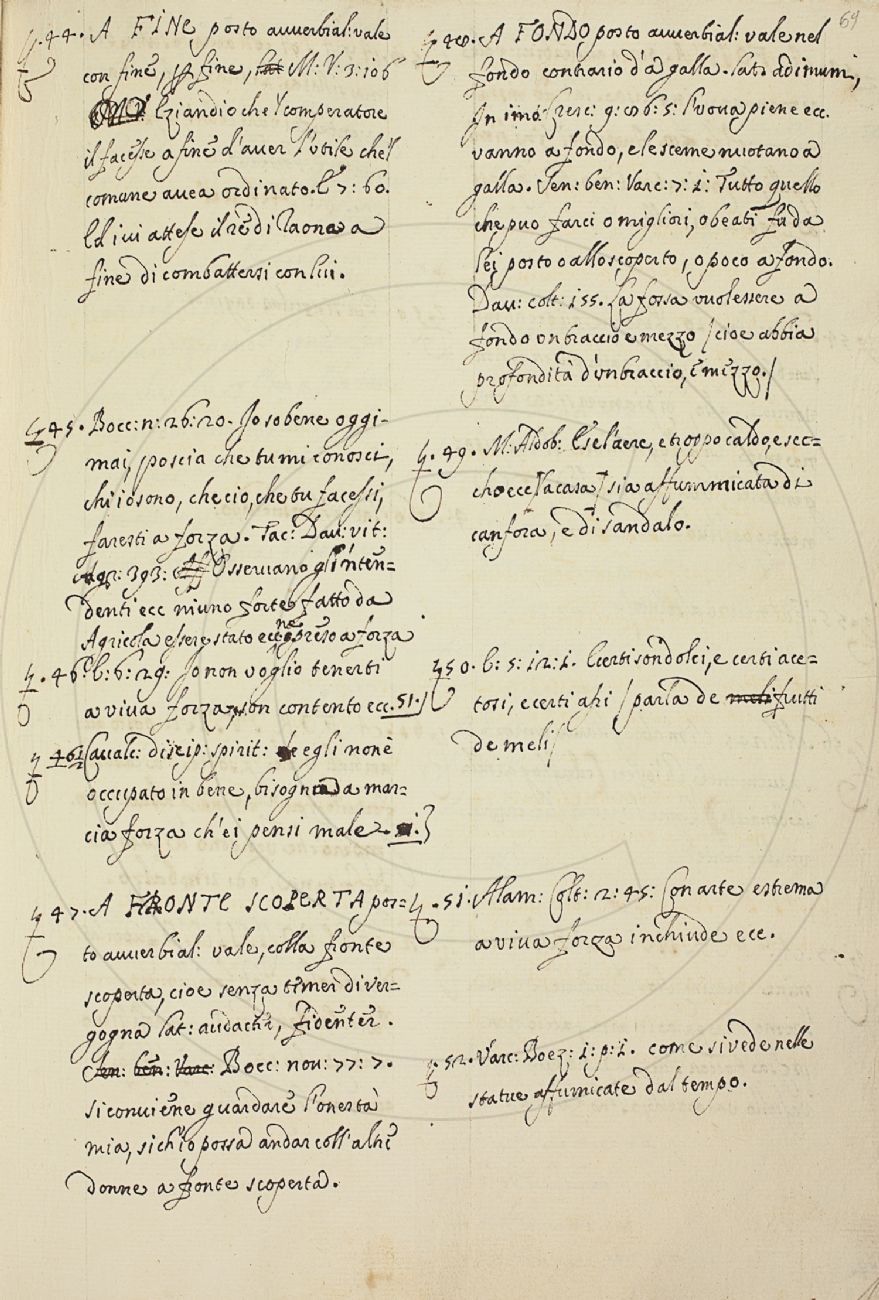 69
§. 44. A FINE posto avverbial: vale
con fine, p fine, lat M: V: 3: 106
Eziandio che 'l comperatore
il facesse a fine d'auer l'utile che 'l
comune avea ordinato. E 7: 60.
Ed ivi attese il re di Raona a
fine di combattersi con lui.
§. 45. Bocc: n: 26: 20. Io so bene oggi-
mai, poscia che tu mi conosci,
chi io sono, che cio, che tu facessi,
faresti a forza. Tac: Dau: vit:
Agr: 393: Osservano gl'inten=
denti ecc niuno forte fatto da
Agricola essere stato ecc ne preso a forza
§. 46. E: 6: 29: Io non voglio tenerti
a viva forza, son contento ecc. 51.
§ 46½ Cavalc: discip: spirit: Se egli non è
occupato in bene, bisogna a mar=
cia forza ch'ei pensi male.
§ 47. A FRONTE SCOPERTA pos=
to avverbial: vale, colla fronte
scoperta, cioe senza temer di ver=
gogna lat: audacter, fidenter.
Sen: ben: Varc: Bocc: nov: 77: 7.
si conviene guardare l'onestà
mia, si ch'io possa andar coll'altre
donne a fronte scoperta.
§ 48. A FONDO posto avverbial: vale nel
fondo contrario d'a galla. Lat: ad imum,
In imo Cresc: 9: 86: 5: l'uova piene ecc.
vanno a fondo, e le sceme nuotano a
galla. Sen: ben: Varc: 7: 1: Tutto quello
che puo farci o migliori, o beati fu da
lei posto o allo scoperto, o poco a fondo.
Dau: colt: 155. La fossa vuol essere a
fondo un braccio e mezzo / cioe abbia
profondità d'un braccio, e mezzo. /
§. 49. M: Aldob: E se l'aere, e troppo caldo, e sec=
cho ecc / la casa / sia affummicata di
canfora, e di sandalo.
§ 50. E: 5: 12: 1. E certi son dolci, e certi ace=
tosi, e certi aspri / parla de meli frutti
de meli /
§. 51. Alam: Colt: 2: 45: Con arte estrema
a viva forza inchiude ecc.
§ 52. Varc: Boez: 1: p: 1. come si vede nelle
statue affumicate dal tempo.